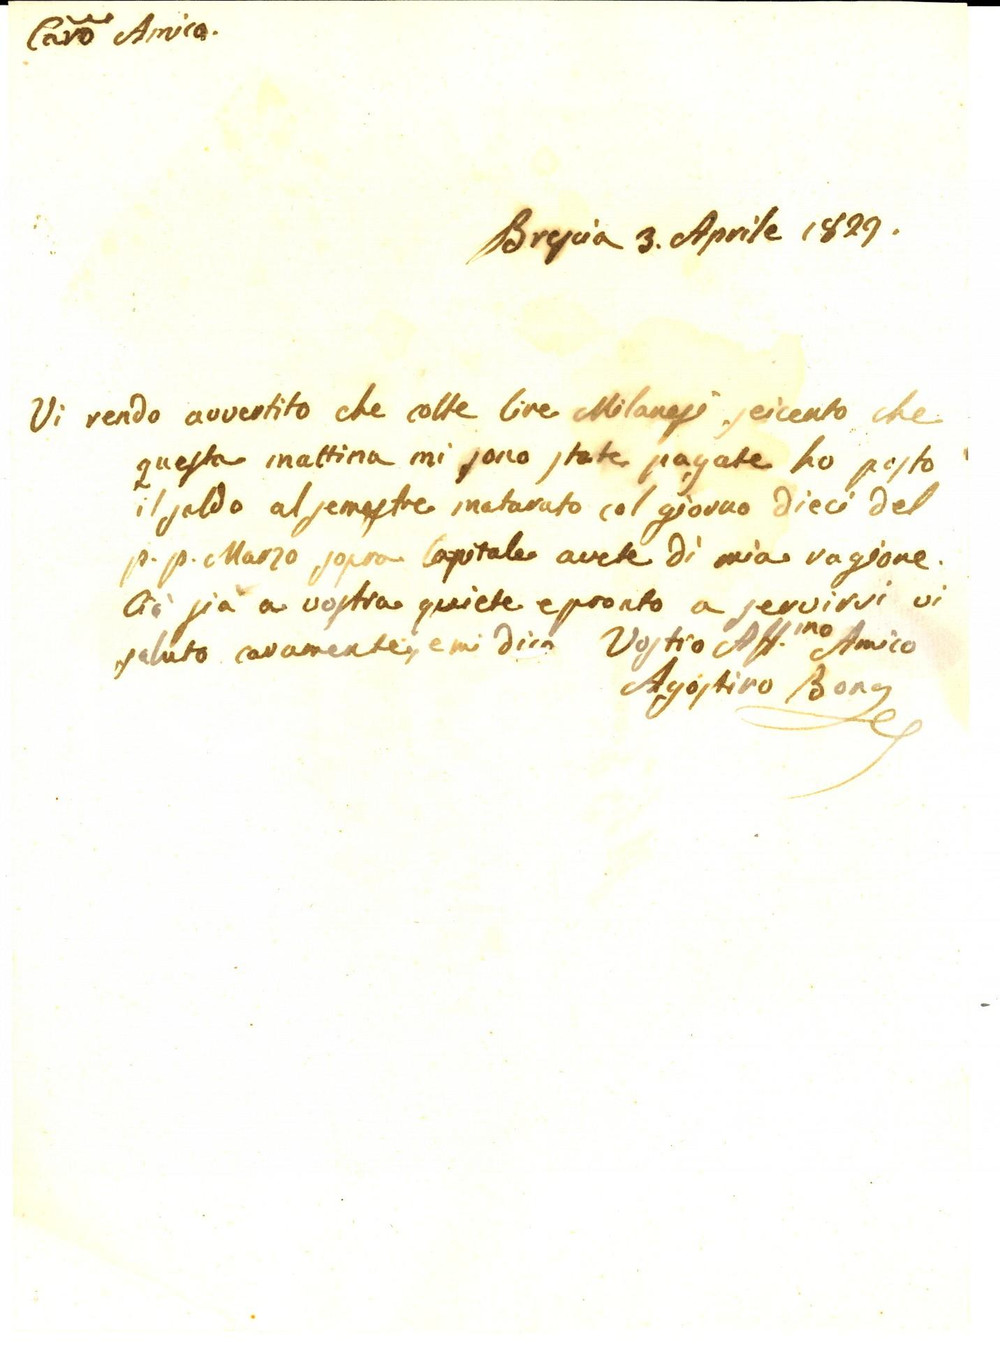 Caro Amico.
Brescia 3. Aprile 1829.
Vi rendo avvertito che colle lire Milanesi seicento che
questa mattina mi sono state pagate ho posto
il saldo al semestre maturato col giorno dieci del
p. p. Marzo sopra Capitale avete di mia ragione.
Ciò sia a vostra quiete e pronto a servirvi vi
saluto caramente, e mi dico Vostro Aff.ino Amico
Agostino Bona